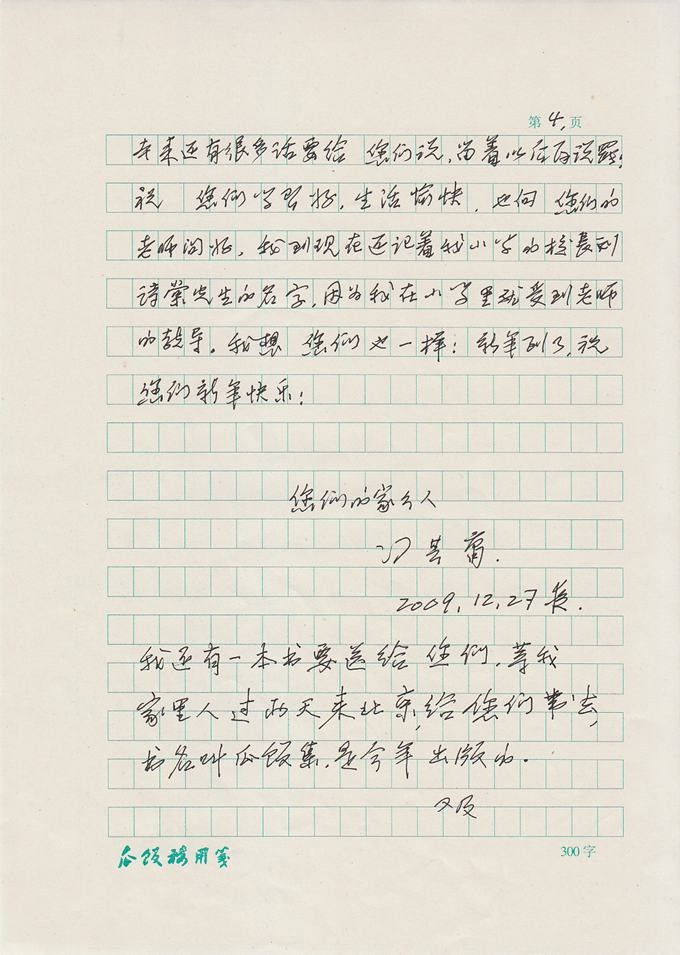 第4.页
本来还有很多话要给 您们说,留着以后再说罢!
祝 您们学习好,生活愉快,也向 您们的
老师问好,我到现在还记着我小学的校长刘
诗崇先生的名字,因为我在小学里就受到老师
的教导。我想 您们也一样!新年到了,祝
您们新年快乐!
您们的家乡人
冯其庸.
2009.12.27夜.
我还有一本书要送给 您们,等我
家里人过两天来北京,给您们带去,
书名叫瓜饭集,是今年出版的.
又及
瓜饭楼用笺
300字